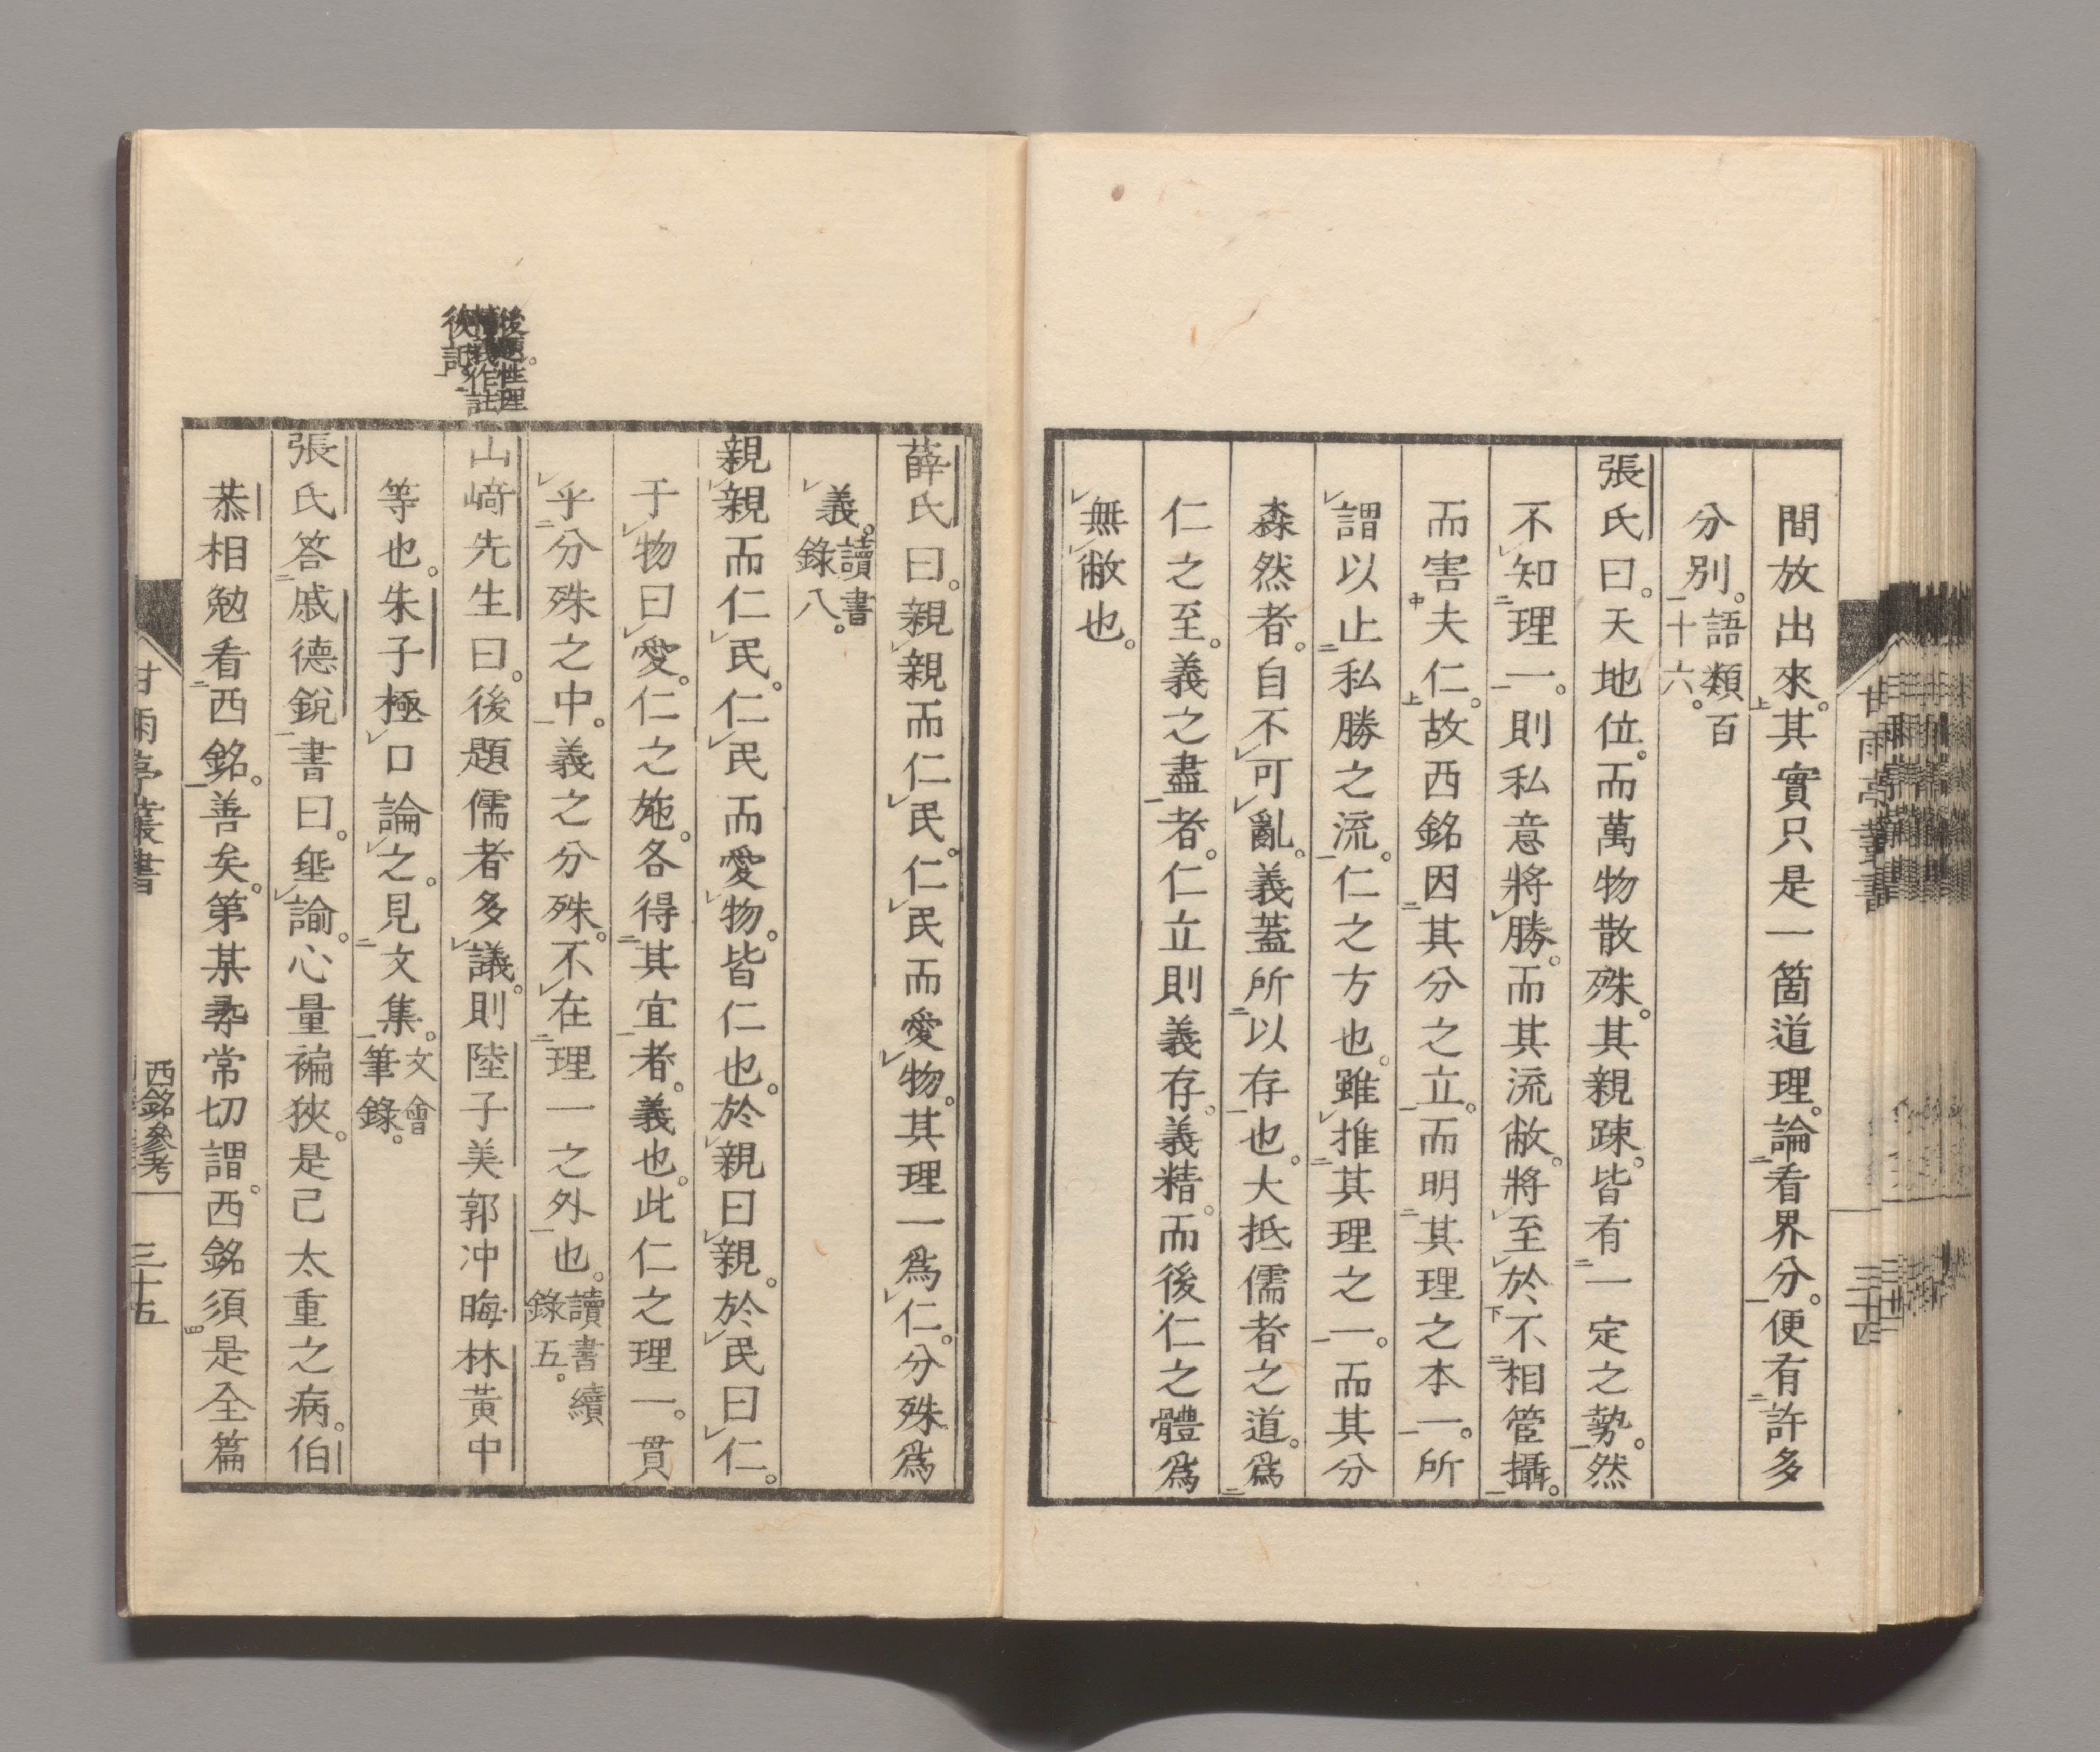 間放出來。其實只是一箇道理。論看界分。便有許多
分別。語類百
十六。
張氏曰。天地位。而萬物散殊。其親踈。皆有一定之勢。然
不知理一。則私意將勝。而其流敝。將至於不相管攝。
而害夫仁。故西銘因其分之立。而明其理之本一。所
謂以止私勝之流。仁之方也。雖推其理之一。而其分
森然者。自不可亂。義蓋所以存也。大抵儒者之道。爲
仁之至。義之盡者。仁立則義存。義精。而後仁之體爲
無敝也。
甘雨亭叢書
三十四
薛氏曰。親親而仁民。仁民而愛物。其理一爲仁。分殊爲
義。讀書
錄八。
親親而仁民。仁民而愛物。皆仁也。於親曰親。於民曰仁。
于物曰愛。仁之施。各得其宜者。義也。此仁之理一。貫
乎分殊之中。義之分殊。不在理一之外也。讀書續
錄五。
山﨑先生曰。後題儒者多議。則陸子美郭冲晦林黃中
等也。朱子極口論之。見文集。文會
筆錄。
張氏答戚德銳書曰。垂諭。心量褊狹。是己太重之病。伯
恭相勉看西銘。善矣。第某尋常切謂。西銘須是全篇
後題。性理
作註
後記。
甘雨亭叢書
西銘參考
三十五